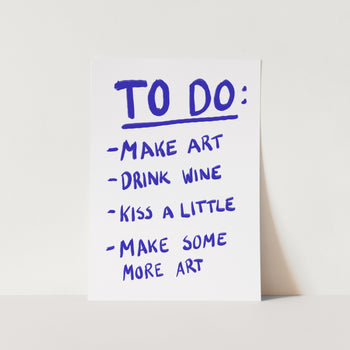 TO DO:
- MAKE ART
- DRINK WINE
- KISS A LITTLE
- MAKE SOME
MORE ART